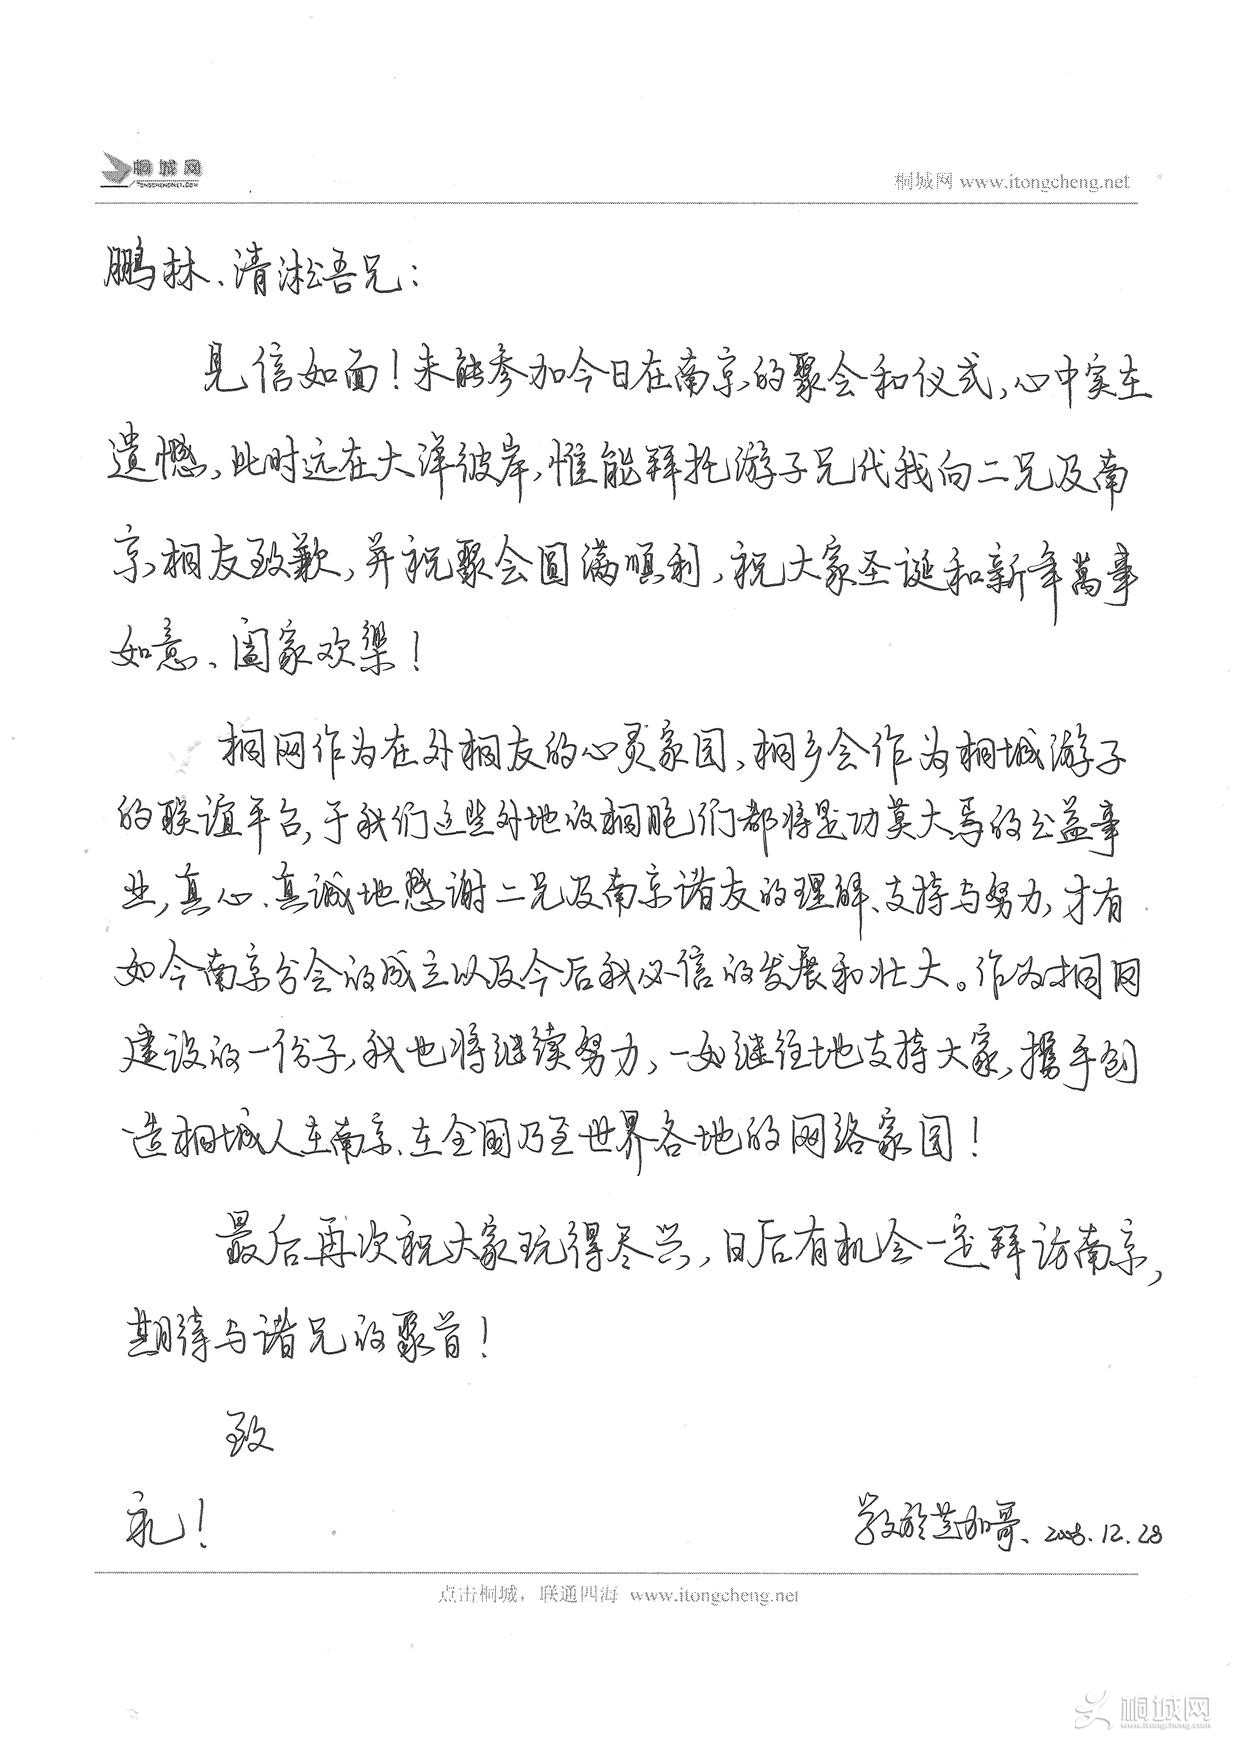 桐城网
TONGCHENGNET.COM
桐城网 www.itongcheng.net
鹏林、清淞吾兄：
见信如面！未能参加今日在南京的聚会和仪式，心中实在
遗憾，此时远在大洋彼岸，惟能拜托游子兄代我向二兄及南
京桐友致歉，并祝聚会圆满顺利，祝大家圣诞和新年萬事
如意、阖家欢樂！
桐网作为在外桐友的心灵家园，桐乡会作为桐城游子
的联谊平台，于我们这些外地的桐胞们都将是功莫大焉的公益事
业，真心、真诚地感谢二兄及南京诸友的理解、支持与努力，才有
如今南京分会的成立以及今后我必信的发展和壮大。作为桐网
建设的一份子，我也将继续努力，一如继往地支持大家，携手创
造桐城人在南京、在全國乃至世界各地的网络家园！
最后再次祝大家玩得尽兴，日后有机会一定拜访南京，
期待与诸兄的聚首！
致
礼！
於芝加哥、2008.12.28
点击桐城，联通四海 www.itongcheng.net
桐城网
www.itongcheng.com